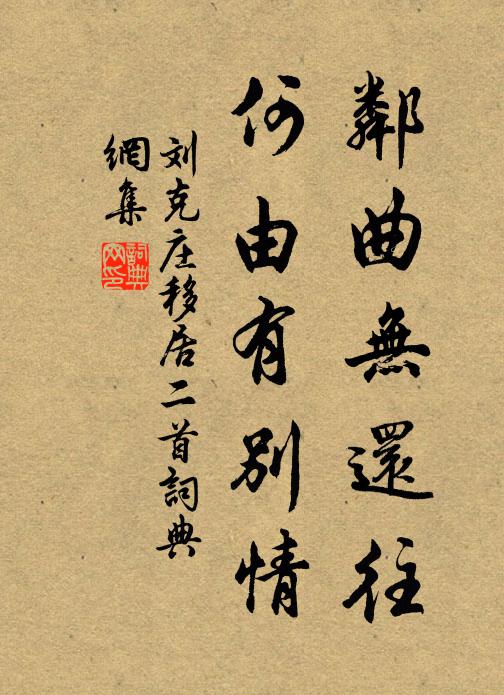 鄰曲無還往
何由有別情
刘克庄移居二首詞典
網集
詞典
网印